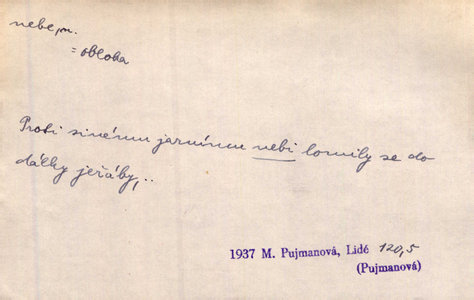 nebe, n.
= obloha
Proti sinému jarnímu nebi lomily se do
dálky jeřáby,..
1937 M. Pujmanová, Lidé 120,5
(Pujmanová)